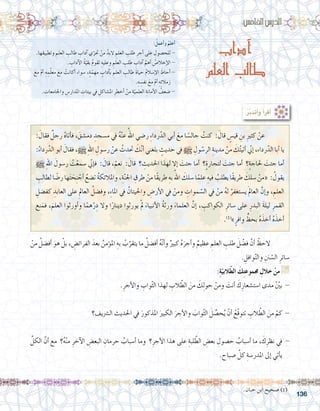 الدرس الخامس
آداب
طالب العلم
أتعلّم وأعمل:
للحصول على أجر طلب العلم لابدّ من تحرّي آداب طالب العلم وتطبيقها.
الإخلاص أهمّ آداب طالب العلم وعليه تقوم بقيّة الآداب.
أحاط الإسلام حياة طالب العلم بآداب مهمّة، سواء أكانت مع معلّمه أم مع زملائه أم مع نفسه.
ضعف الأمانة العلميّة من أخطر المشاكل في بيئات المدارس والجامعات.
اقرأ وأتدبّر
عن كثير بن قيس قال: كنت جالسًا مع أبي الدرداء رضي الله عنه في مسجد دمشق، فأتاه رجل فقال:
يا أبا الدرداء، إنّي أتيتك من مدينة الرسول ﷺ في حديث بلغني أنّك تحدّث عن رسول الله ﷺ، فقال أبو الدرداء:
أما جئت لحاجة؟ أما جئت لتجارة؟ أما جئت إلا لهذا الحديث؟ قال: نعم، قال: فإنّي سمعت رسول الله ﷺ
يقول: «من سلك طريقًا يطلب فيه علمًا سلك الله به طريقًا من طرق الجنّة، والملائكة تضع أجنحتها رضًا لطالب
العلم، وإنّ العالم يستغفر له من في السموات ومن في الأرض والحيتان في الماء، وفضل العالم على العابد كفضل
القمر ليلة البدر على سائر الكواكب، إنّ العلماء ورثة الأنبياء، إنّ الأنبياء لم يورثوا دينارًا ولا درهمًا وأورثوا العلم، فمن
أخذه أخذ بحظّ وافر»(١).
ألاحظ أنّ فضل طلب العلم عظيم وأجره كبير وأنّه أفضل ما يتقرّب به المؤمن بعد الفرائض، بل هو أفضل من
سائر السّنن والنوافل.
من خلال مجموعتك الطلّابيّة:
– بيّن مدى استشعارك أنت ومن حولك من الطلّاب لهذا الثواب والأجر.
– كم من الطلّاب تتوقّع أن يحصّل الثواب والأجر الكبير المذكور في الحديث الشريف؟
– في نظرك، ما أسباب حصول بعض الطلبة على هذا الأجر؟ وما أسباب حرمان البعض الآخر منه؟ مع أنّ الكلّ
يأتي إلى المدرسة كلّ صباح.
(١) صحيح ابن حبان.
136